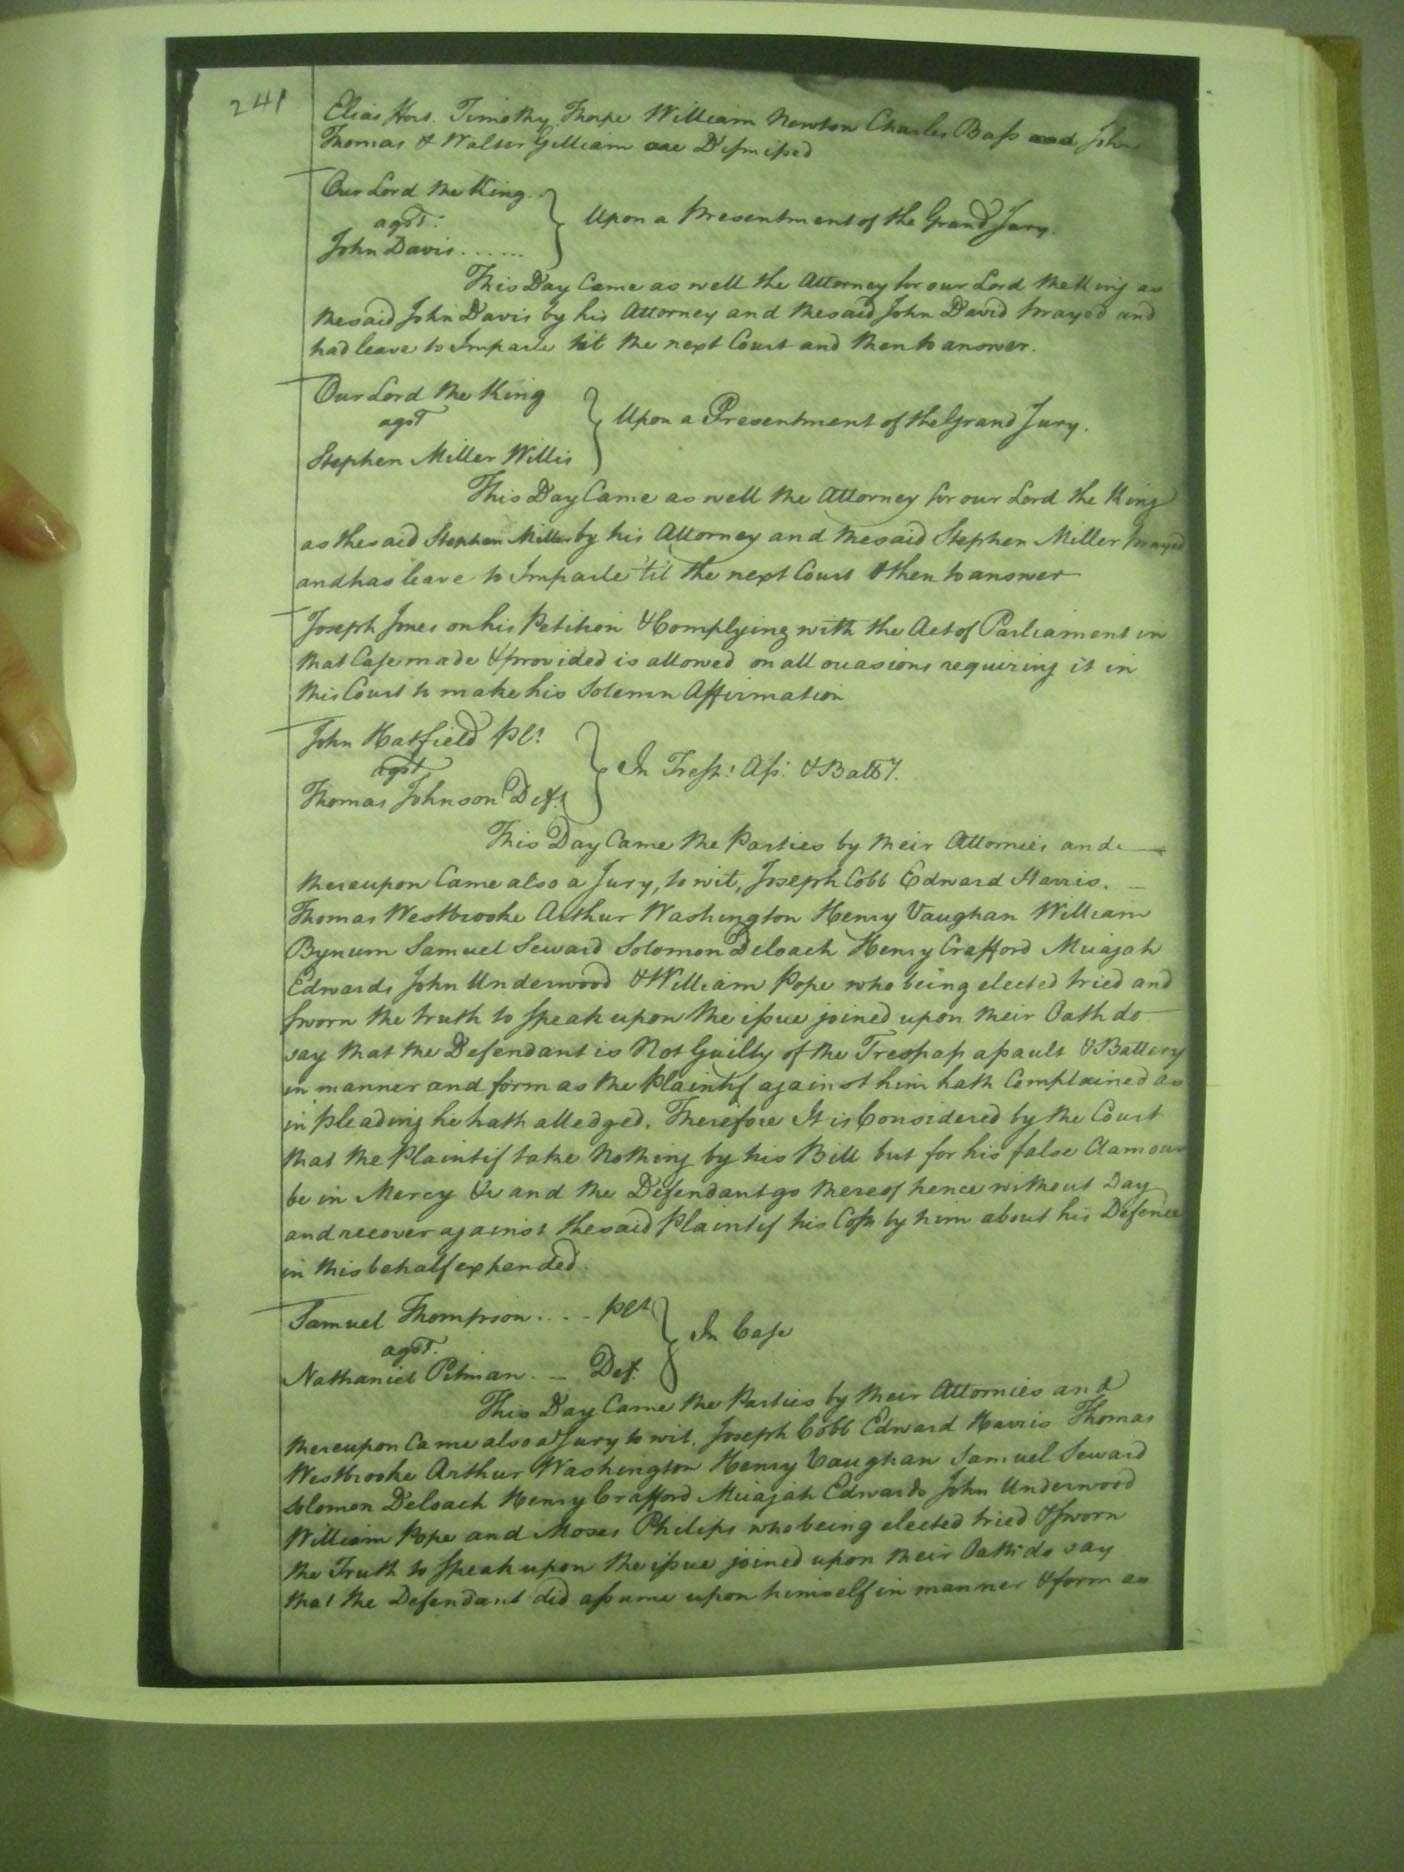 241
Elias Hort. Timothy Thorpe William Newton Charles Bass and John
Thomas & Walter Gilliam are Dismissed
Our Lord the King
agst.
John Davis ......
Upon a Presentment of the Grand Jury.
This Day Came as well the Attorney for our Lord the King as
the said John Davis by his Attorney and the said John David prayed and
had leave to Imparle til the next Court and then to answer.
Our Lord the King
agst
Stephen Miller Willis
Upon a Presentment of the Grand Jury.
This Day Came as well the Attorney for our Lord the King
as the said Stephen Miller by his Attorney and the said Stephen Miller prayed
and has leave to Imparle 'til the next Court & then to answer
Joseph Jones on his Petition & Complying with the Act of Parliament in
that Case made & provided is allowed on all occasions requiring it in
this Court to make his Solemn Affirmation
John Hatfield plt
agst
Thomas Johnson Deft
In Tresp: Ass: & Batty.
This Day Came the Parties by their Attornies and
thereupon Came also a Jury, to wit, Joseph Cobb Edward Harris.
Thomas Westbrooke Arthur Washington Henry Vaughan William
Bynum Samuel Seward Solomon Deloach Henry Crafford Micajah
Edwards John Underwood & William Pope who being elected tried and
Sworn the truth to Speak upon the issue joined upon their Oath do
say that the Defendant is Not Guilty of the Trespass assault & Battery
in manner and form as the Plaintif against him hath Complained as
in pleading he hath alledged. Therefore It is Considered by the Court
that the Plaintif take Nothing by his Bill but for his false Clamour
be in Mercy &c and the Defendant go thereof hence without Day
and recover against the said Plaintif his Costs by him about his Defence
in this behalf expended.
Samuel Thompson .... plt
agst.
Nathaniel Pitman. — Def.
In Case
This Day Came the Parties by their Attornies and
thereupon Came also a Jury to wit. Joseph Cobb Edward Harris Thomas
Westbrooke Arthur Washington Henry Vaughan Samuel Seward
Solomon Deloach Henry Crafford Micajah Edwards John Underwood
William Pope and Moses Philips who being elected tried & Sworn
the Truth to Speak upon the issue joined upon their Oath do say
that the Defendant did assume upon himself in manner & form as